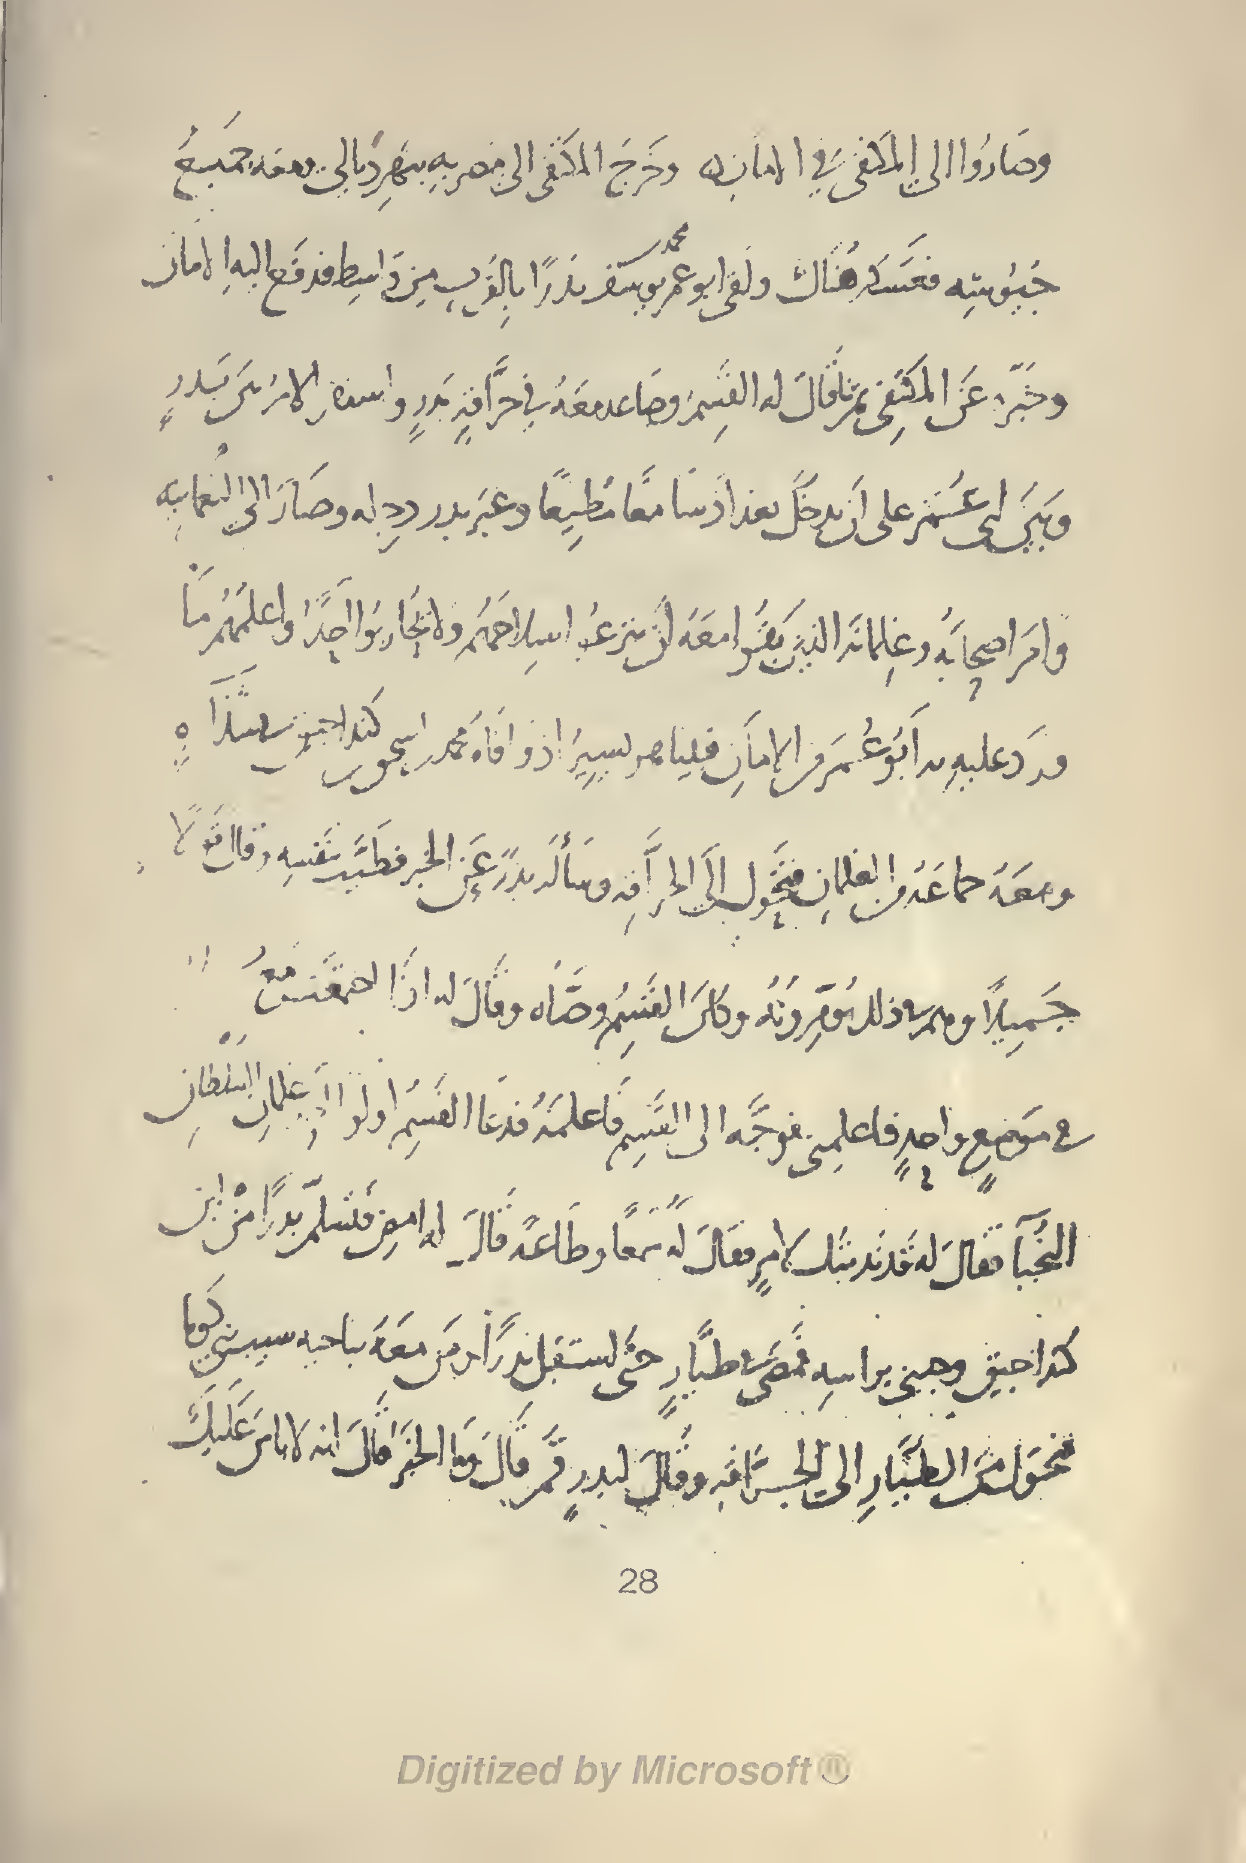 وصَارُوا الى المكتفى في الامان وخَرَجَ المكتفى الى مضربه بنهر دَيالى ومعه جميعُ
جُيُوشِه فعَسكر هُناك ولقى ابو عمر محمد بن يوسف بَدْرًا بالقُرب من وَاسِط فدفَع اليه الامان
وخَبّره عَن المكتَفى بما قَالَ له القَسِمُ وصَاعد معَهُ في حرَّاقةِ بَدرٍ
وبَيْنَ ابى عُمَر على اَن يدخُلَ بغداذ سَامعًا مُطِيعًا وعبَر بدر دِجله وصَارَ الى النُعمانيه
وامَر اصحابَهُ وغِلمانَه الذين بَقُوا معَهُ اَن ينزعُوا سِلاحَهُم ولا يُحاربُوا اَحَدًا واعلمَهُم مَا
ورَدَ عليهِ به اَبُو عُمَر من الامَانِ فبينا هو يسِيرُ اذ وافَاهُ محمد بن اسحق بن كنداجيق في شَذَا
ومعَهُ جماعَةٌ من الغلمانِ فتحَّول الى الحرَّاقه وسَألَه بَدرٌ عَن الخبر فطَيَّبَ نفسه وقال قولًا
جَمِيلًا وهم في ذلك يُؤمِّرونَهُ وكانَ القَسِمُ وجَّهَه وقَالَ له اذَا اجتمعتَ معَهُ
فى مَوضعٍ واحدٍ فاعلِمنى فوجَّه الى القَسِم فاَعلمَهُ فدعَا القَسِمُ لولو اَحَد غلمانِ السُلطانِ
النُجَبآ فقالَ له قَد نَدبتُك لامرٍ فقالَ لَهُ سَمعًا وطَاعةً قَالَ له امض فتسلّم بدرًا مِنْ ابن
كنداجيق وجِئنى براسِهِ فمضَى في طيَّارٍ حتَّى استقبل بَدرًا ومَن معَهُ بناحيه سيب بنى كُوما
فتحَوّل مِنَ الطيَّارِ الى الحرَّاقَه وقَالَ لبدرٍ قُم قَالَ وَما الخبَرُ قَالَ انه لا باسَ عَلَيكَ
28
Digitized by Microsoft ®